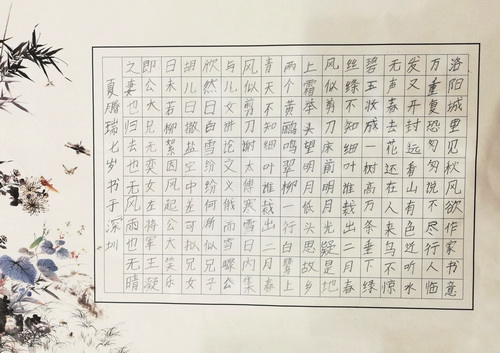 洛阳城里见秋风欲作家书意
万重复恐匆匆说不尽行人临
发又开封远看山有色近听水
无声春去花还在人来鸟不惊
碧玉妆成一树高万条垂下绿
丝绦不知细叶谁裁出二月春
风似剪刀床前明月光疑是地
上霜举头望明月低头思故乡
两个黄鹂鸣翠柳一行白鹭上
青天不知细叶谁裁出二月春
风似剪刀谢太傅寒雪日内集
与儿女讲论文义俄而雪骤公
欣然曰白雪纷纷何所似兄子
胡儿曰撒盐空中差可拟兄女
曰未若柳絮因风起公大笑乐
即公大兄无奕女左将军王凝
之妻也归去也无风雨也无晴
夏腾瑞七岁书于深圳